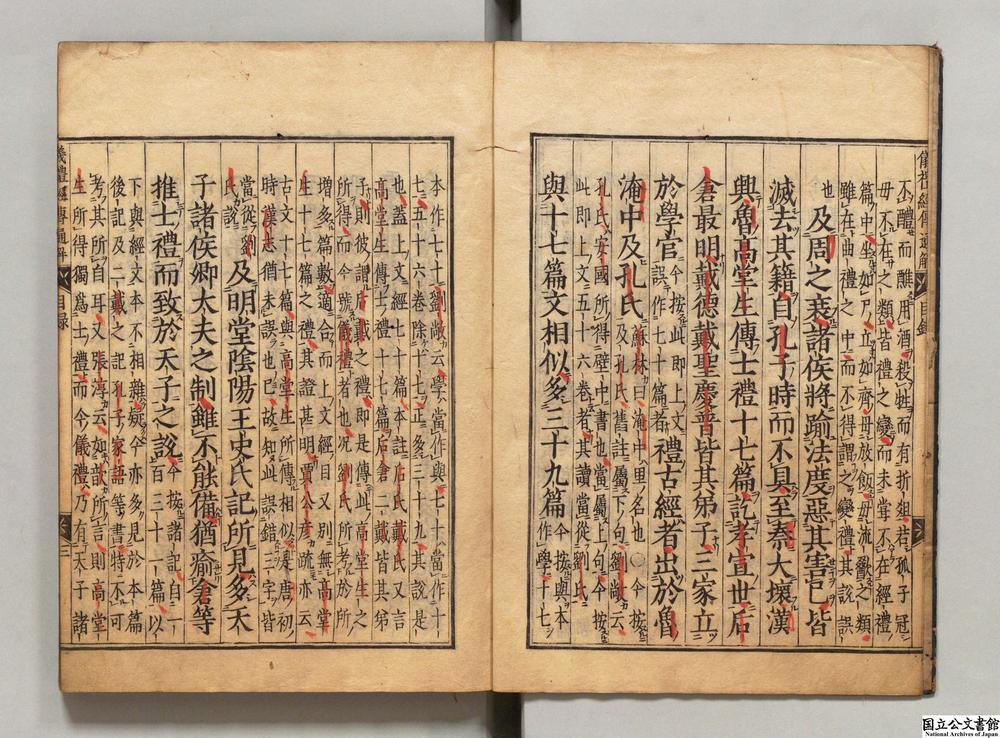 儀禮經傳通解 目錄
不醴而醮用酒殺牲而有折俎若孤子冠
毋不在之類皆禮之變而未嘗不在經禮
篇中坐如尸立如齊毋放飯毋流歠之類
雖在曲禮之中而不得謂之變禮其說誤
也
及周之衰諸侯將踰法度惡其害已皆
滅去其籍自孔子時而不具至秦大壞漢
興魯高堂生傳士禮十七篇訖孝宣世后
倉最明戴德戴聖慶普皆其弟子三家立
於學官今按此即上文七十篇者誤作 禮古經者出於魯
淹中及孔氏蘇林曰淹中里名也○今按孔氏安國所得壁中書也
及孔氏舊註屬下句劉敞云當屬上句今按此即上文五十六卷者其讀當從劉氏
與十七篇文相似多三十九篇今按與本作學十七
本作七十劉敞云學當作與七十當作十
七五十六卷除十七正多三十九其說是
也蓋上文經七十篇本註后氏戴氏又言
高堂生傳士禮十七篇后倉二戴皆其弟
子則彼謂后戴之禮即是傳此高堂生之
所得而今號儀禮者也况劉氏所考於所
增多篇數適合而上文經目又別無高堂
生十七篇之禮其證甚明賈公彥疏亦云
古文十七篇與高堂生所傳相似是唐初
時漢志猶未誤也已故知此誤錯三字皆
當從劉氏說 及明堂陰陽王史氏記所見多天
子諸侯卿大夫之制雖不能備猶瘉倉等
推士禮而致於天子之說今按諸記自一百三十一篇以
下與經文本不相雜疑今亦多見於本篇
後記及二戴之記孔子家語等書特不可
考其所自耳又張淳云如歆所言則高堂
生所得獨爲士禮而今儀禮乃有天子諸
儀禮經傳通解 目錄 三
国立公文書館
National Archives of Japan